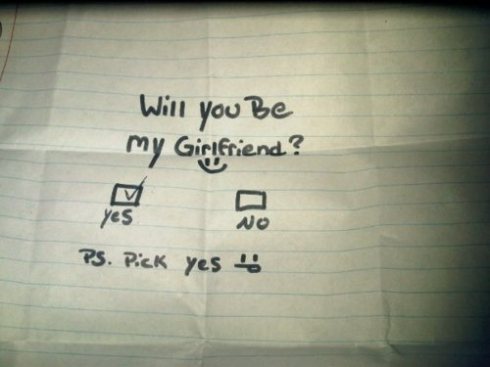 Will you Be
my Girlfriend?
yes
NO
PS. Pick yes